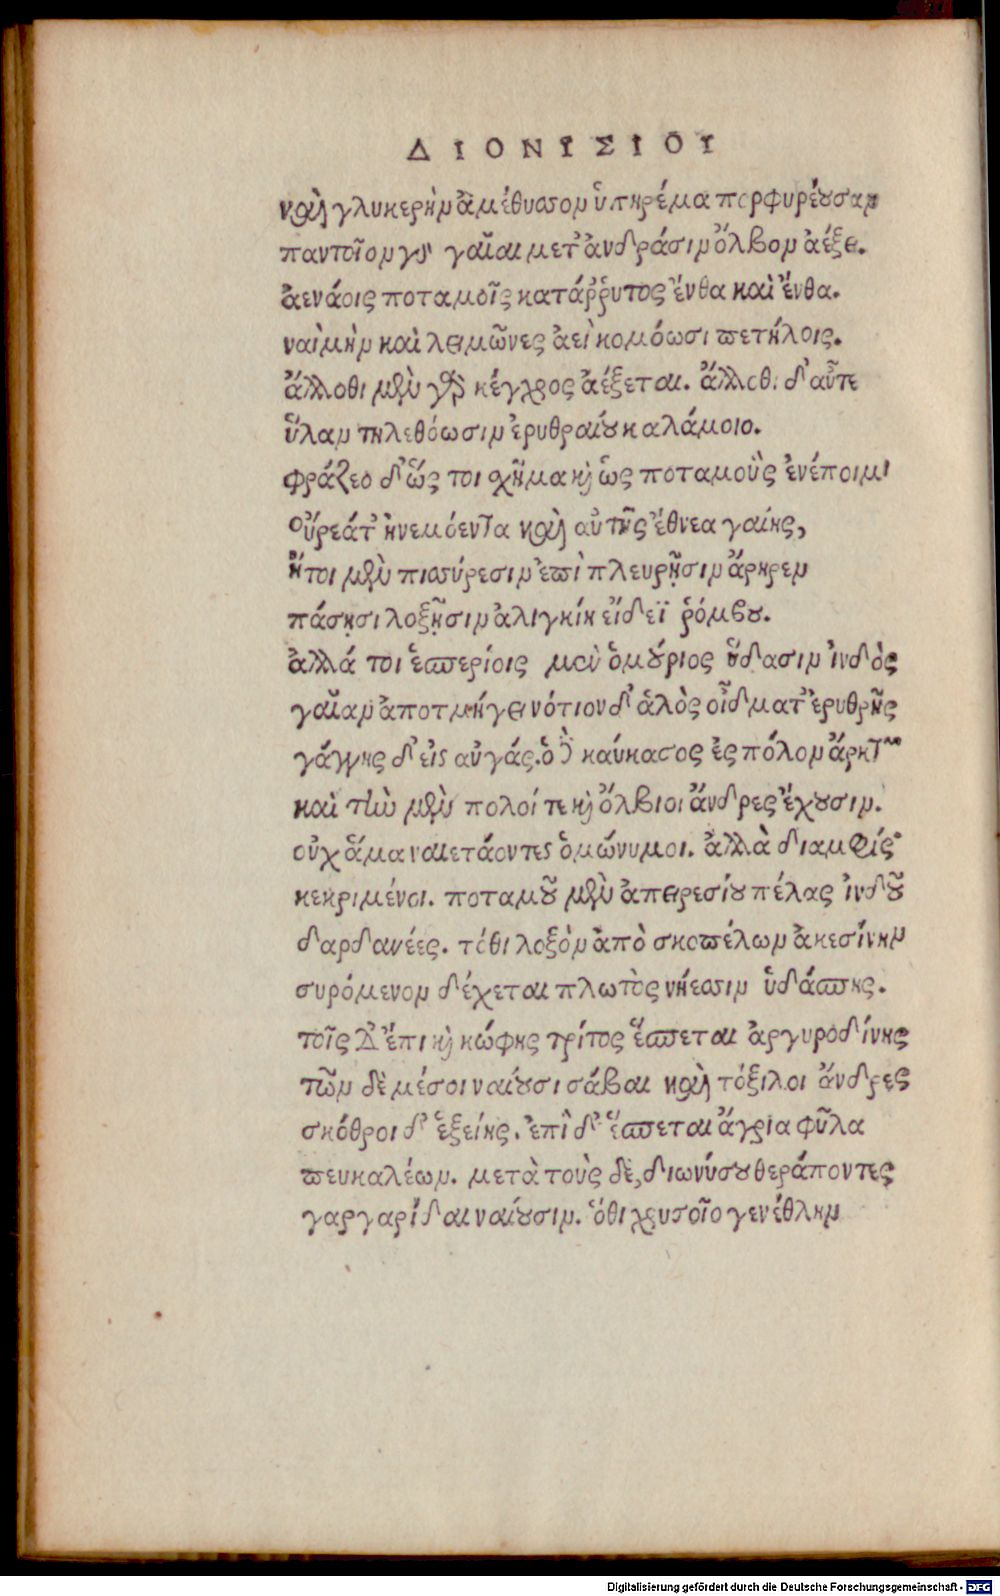 ΔΙΟΝΥΣΙΟΥ
καὶ γλυκερὴν ἀμέθυσον ὑπηρέμα πορφυρέουσαν
παντοῖον γὰρ γαῖαι μετ' ἀνδράσιν ὄλβον ἀέξει.
ἀενάοις ποταμοῖς κατάῤῥυτος ἔνθα καὶ ἔνθα.
ναὶ μὴν καὶ λειμῶνες ἀεὶ κομόωσι πετήλοις.
ἄλλοθι μὲν γὰρ κέγχρος ἀέξεται. ἄλλοθι δ' αὖτε
ὗλαν τηλεθόωσιν ἐρυθραίου καλάμοιο.
φράζεο δ' ὥς τοι σχῆμα καὶ ὡς ποταμοὺς ἐνέποιμι
οὔρεάτ' ἠνεμόεντα καὶ αὐτῆς ἔθνεα γαίης,
ἤτοι μὲν πισύρεσιν ἐπὶ πλευρῇσιν ἄρηρεν
πάσῃσι λοξῇσιν ἀλιγκίη εἴδεϊ ῥόμβου.
ἀλλά τοι ἑσπερίοις μὲν ὁμούριος ὕδασιν ἰνδὸς
γαῖαν ἀποτμήγει νότιον δ' ἁλὸς οἶδματ' ἐρυθρῆς
γάγγης δ' εἰς αὐγάς. ὁ δὲ καύκασος ἐς πόλον ἄρκτων
καὶ τὴν μὲν πολοί τε καὶ ὄλβιοι ἄνδρες ἔχουσιν.
οὐχ ἅμα ναιετάοντες ὁμώνυμοι. ἀλλὰ διαμφίς
κεκριμένοι. ποταμοῦ μὲν ἀπειρεσίου πέλας ἰνδοῦ
δαρδανέες. τόθι λοξὸν ἀπὸ σκοπέλων ἀκεσίνην
συρόμενον δέχεται πλωτὸς νήεσιν ὑδάσπης.
τοῖς δ' ἔπι καὶ κώφης τρίτος ἕσπεται ἀργυροδίνης
τῶν δὲ μέσοι ναίουσι σάβαι καὶ τόξιλοι ἄνδρες
σκόθροι δ' ἑξείης. ἐπὶ δ' ἕσπεται ἄγρια φῦλα
πευκαλέων. μετὰ τοὺς δὲ, διωνύσου θεράποντες
γαργαρίδαι ναίουσιν. ὅθι χρυσοῖο γενέθλην
Digitalisierung gefördert durch die Deutsche Forschungsgemeinschaft - DFG